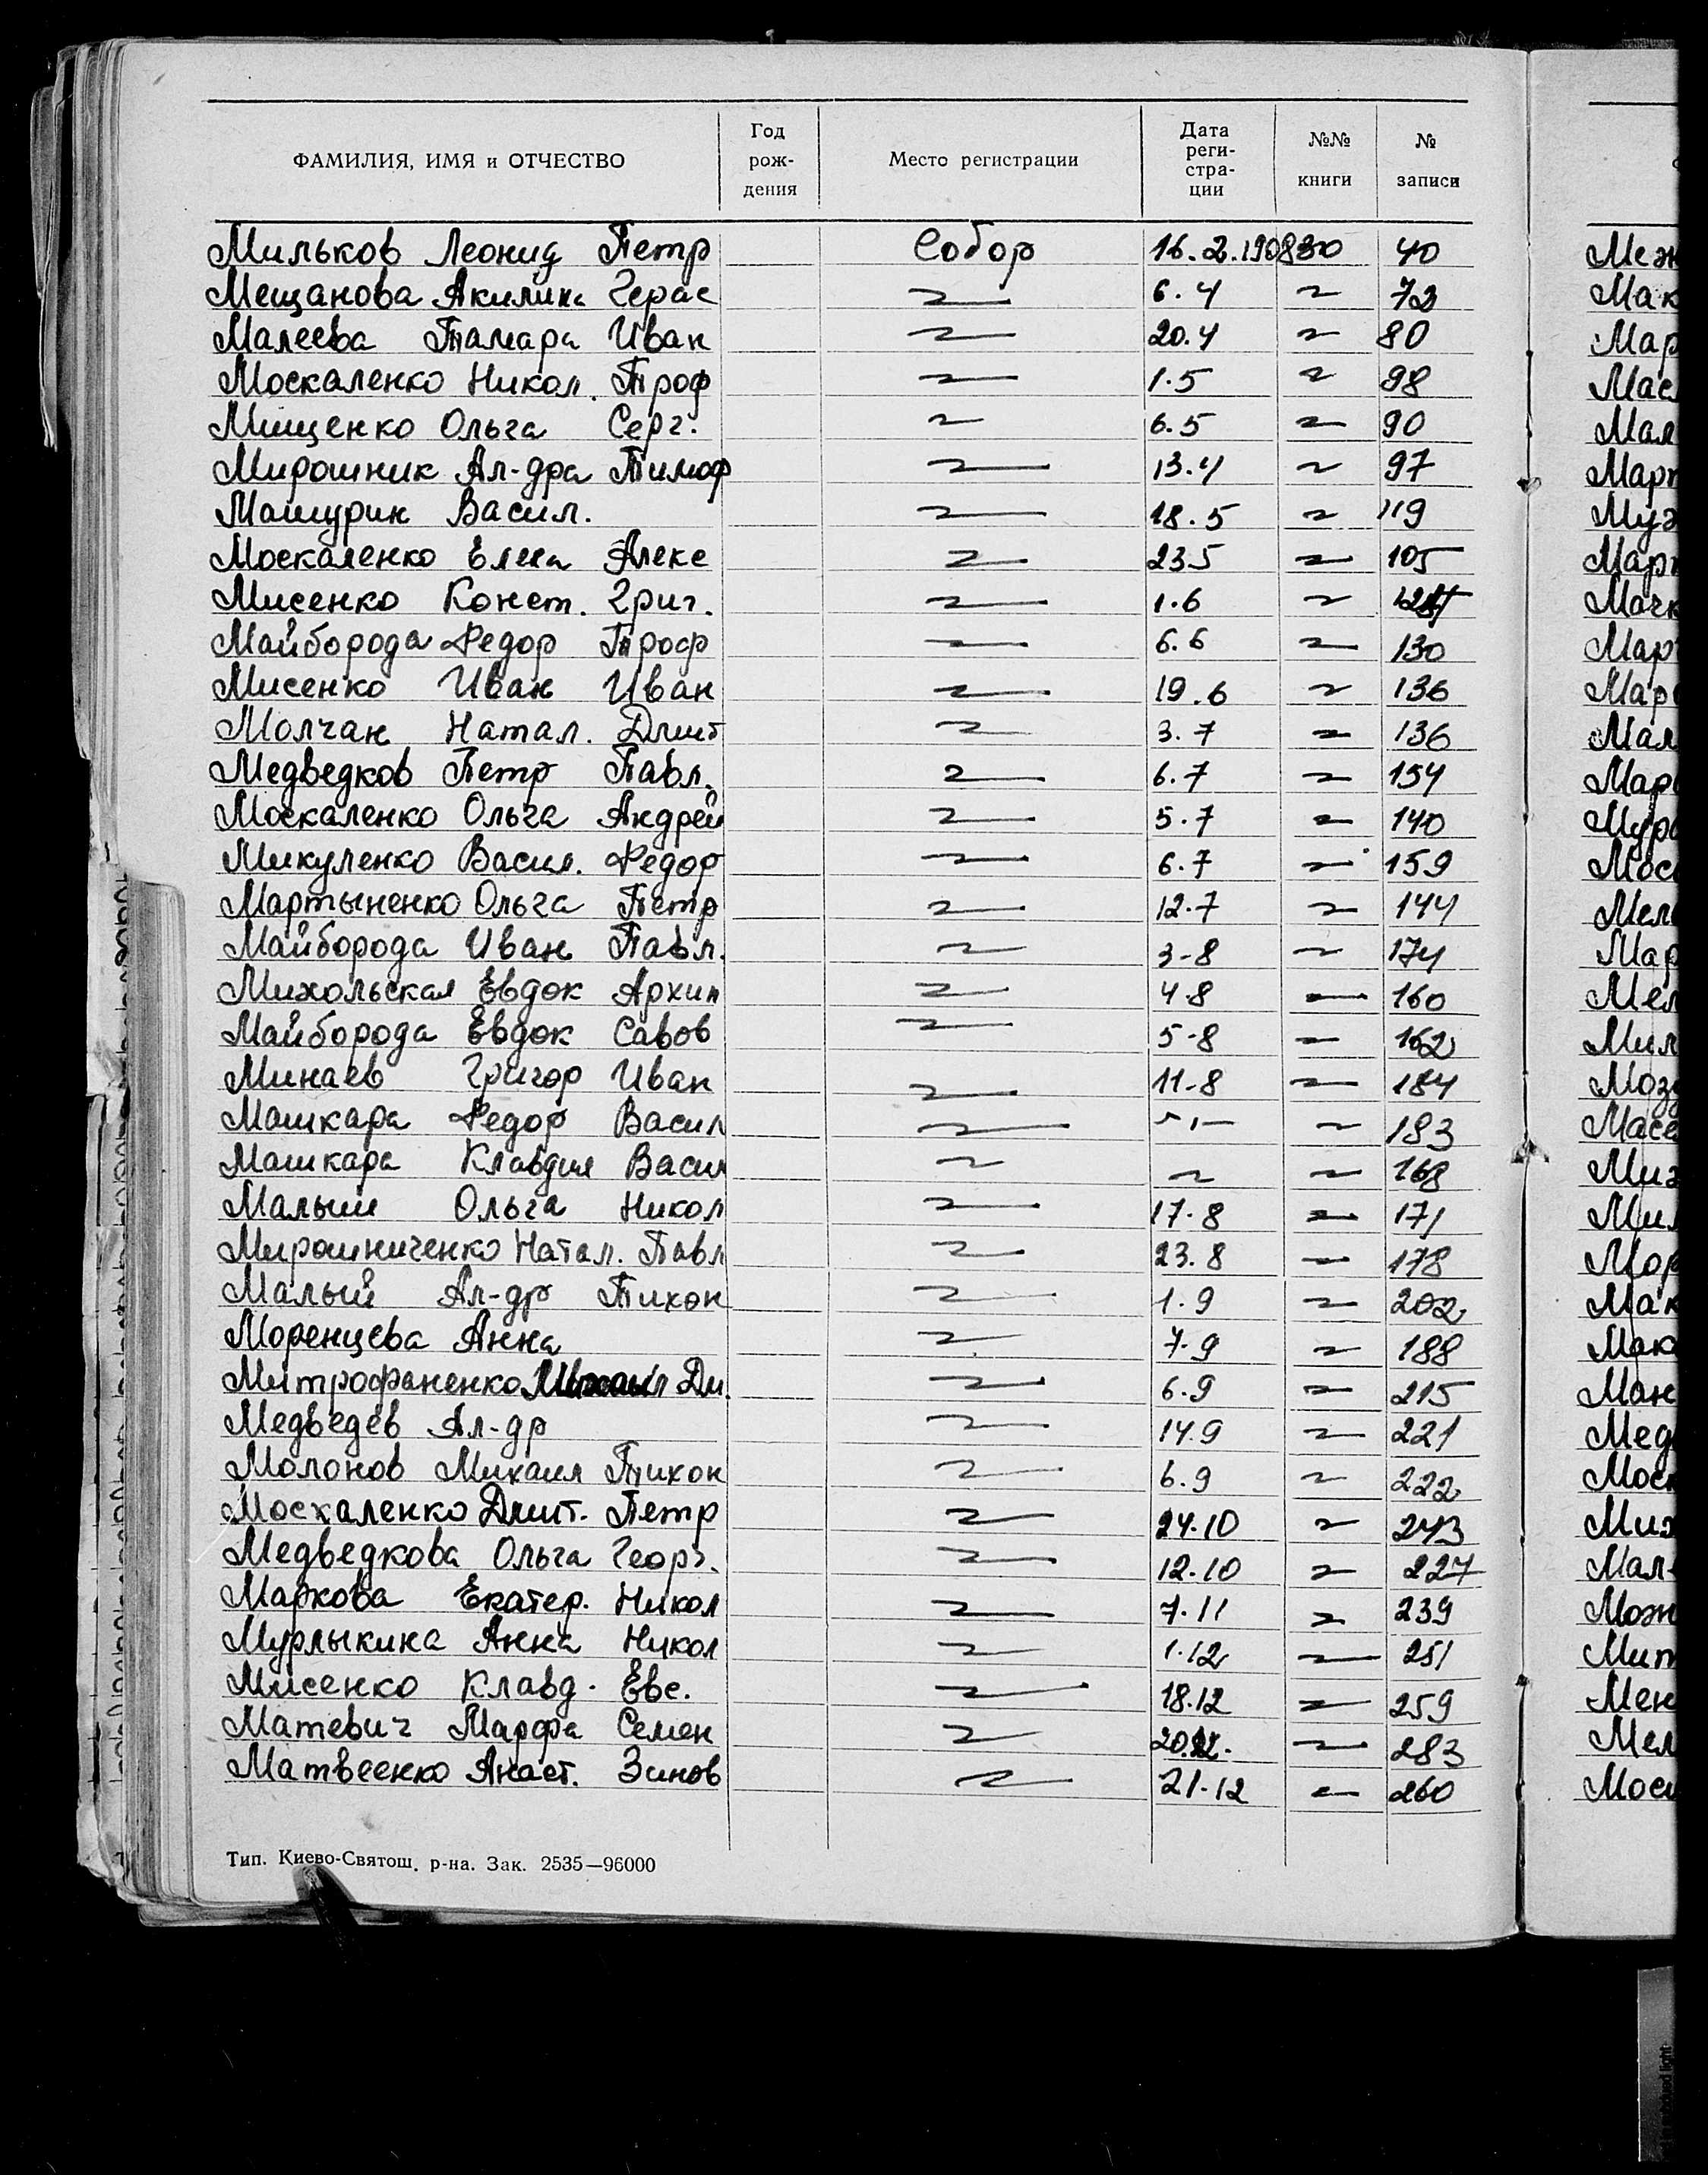 ФАМИЛИЯ, ИМЯ и ОТЧЕСТВО Год рождения Место регистрации Дата регистрации №№ книги № записи
Мильков Леонид Петр Собор 16.2.1908 30 40
Мещанова Акилина Герас 6.4 72
Малеева Тамара Иван 20.4 80
Москаленко Никол. Троф 1.5 98
Мищенко Ольга Серг. 6.5 90
Мирошник Ал-дра Тимоф 13.4 97
Машурин Васил. 18.5 119
Москаленко Елена Алекс 23.5 105
Мисенко Конст. Григ. 1.6
Майборода Федор Троф 6.6 130
Мисенко Иван Иван 19.6 136
Молчан Натал. Дмит 3.7 136
Медведков Петр Павл. 6.7 154
Москаленко Ольга Андрей 5.7 140
Микуленко Васил. Федор 6.7 159
Мартыненко Ольга Петр 12.7 144
Майборода Иван Павл. 3-8 174
Михольская Евдок Архип 4.8 160
Майборода Евдок Савов 5-8 162
Минаев Григор Иван 11-8 184
Машкара Федор Васил 183
Машкара Клавдия Васил 168
Малыш Ольга Никол 17.8 171
Мирошниченко Натал. Павл 23.8 178
Малый Ал-др Тихон 1.9 202
Моренцева Анна 7.9 188
Митрофаненко Михаил Дм. 6.9 215
Медведев Ал-др 14.9 221
Молонов Михаил Тихон 6.9 222
Москаленко Дмит. Петр 24.10 243
Медведкова Ольга Георг. 12.10 227
Маркова Екатер. Никол 7.11 239
Мурлыкина Анна Никол 1.12 251
Мисенко Клавд. Евс. 18.12 259
Матевич Марфа Семен 20.12. 283
Матвеенко Анаст. Зинов 21.12 260
Тип. Киево-Святош. р-на. Зак. 2535—96000